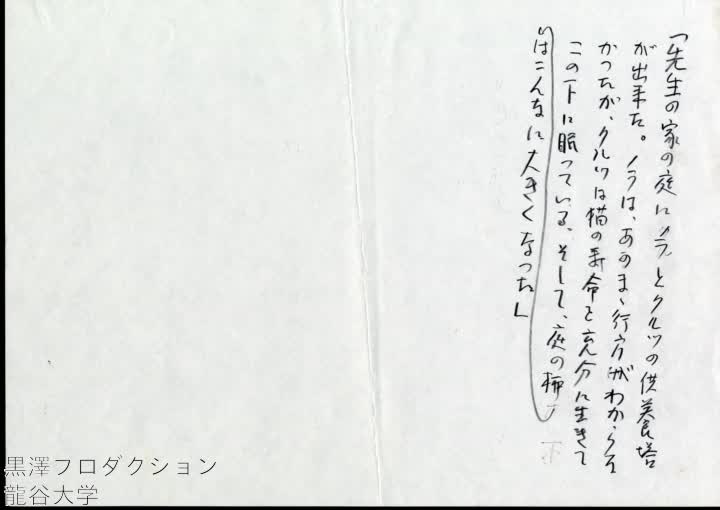 「先生の家の庭にノラとクルツの供養塔
が出来た。ノラは、あのまゝ行方がわからな
かったが、クルツは猫の寿命を充分に生きて
この下に眠っている。そして、庭の柿
はこんなに大きくなった」
黒澤プロダクション
龍谷大学